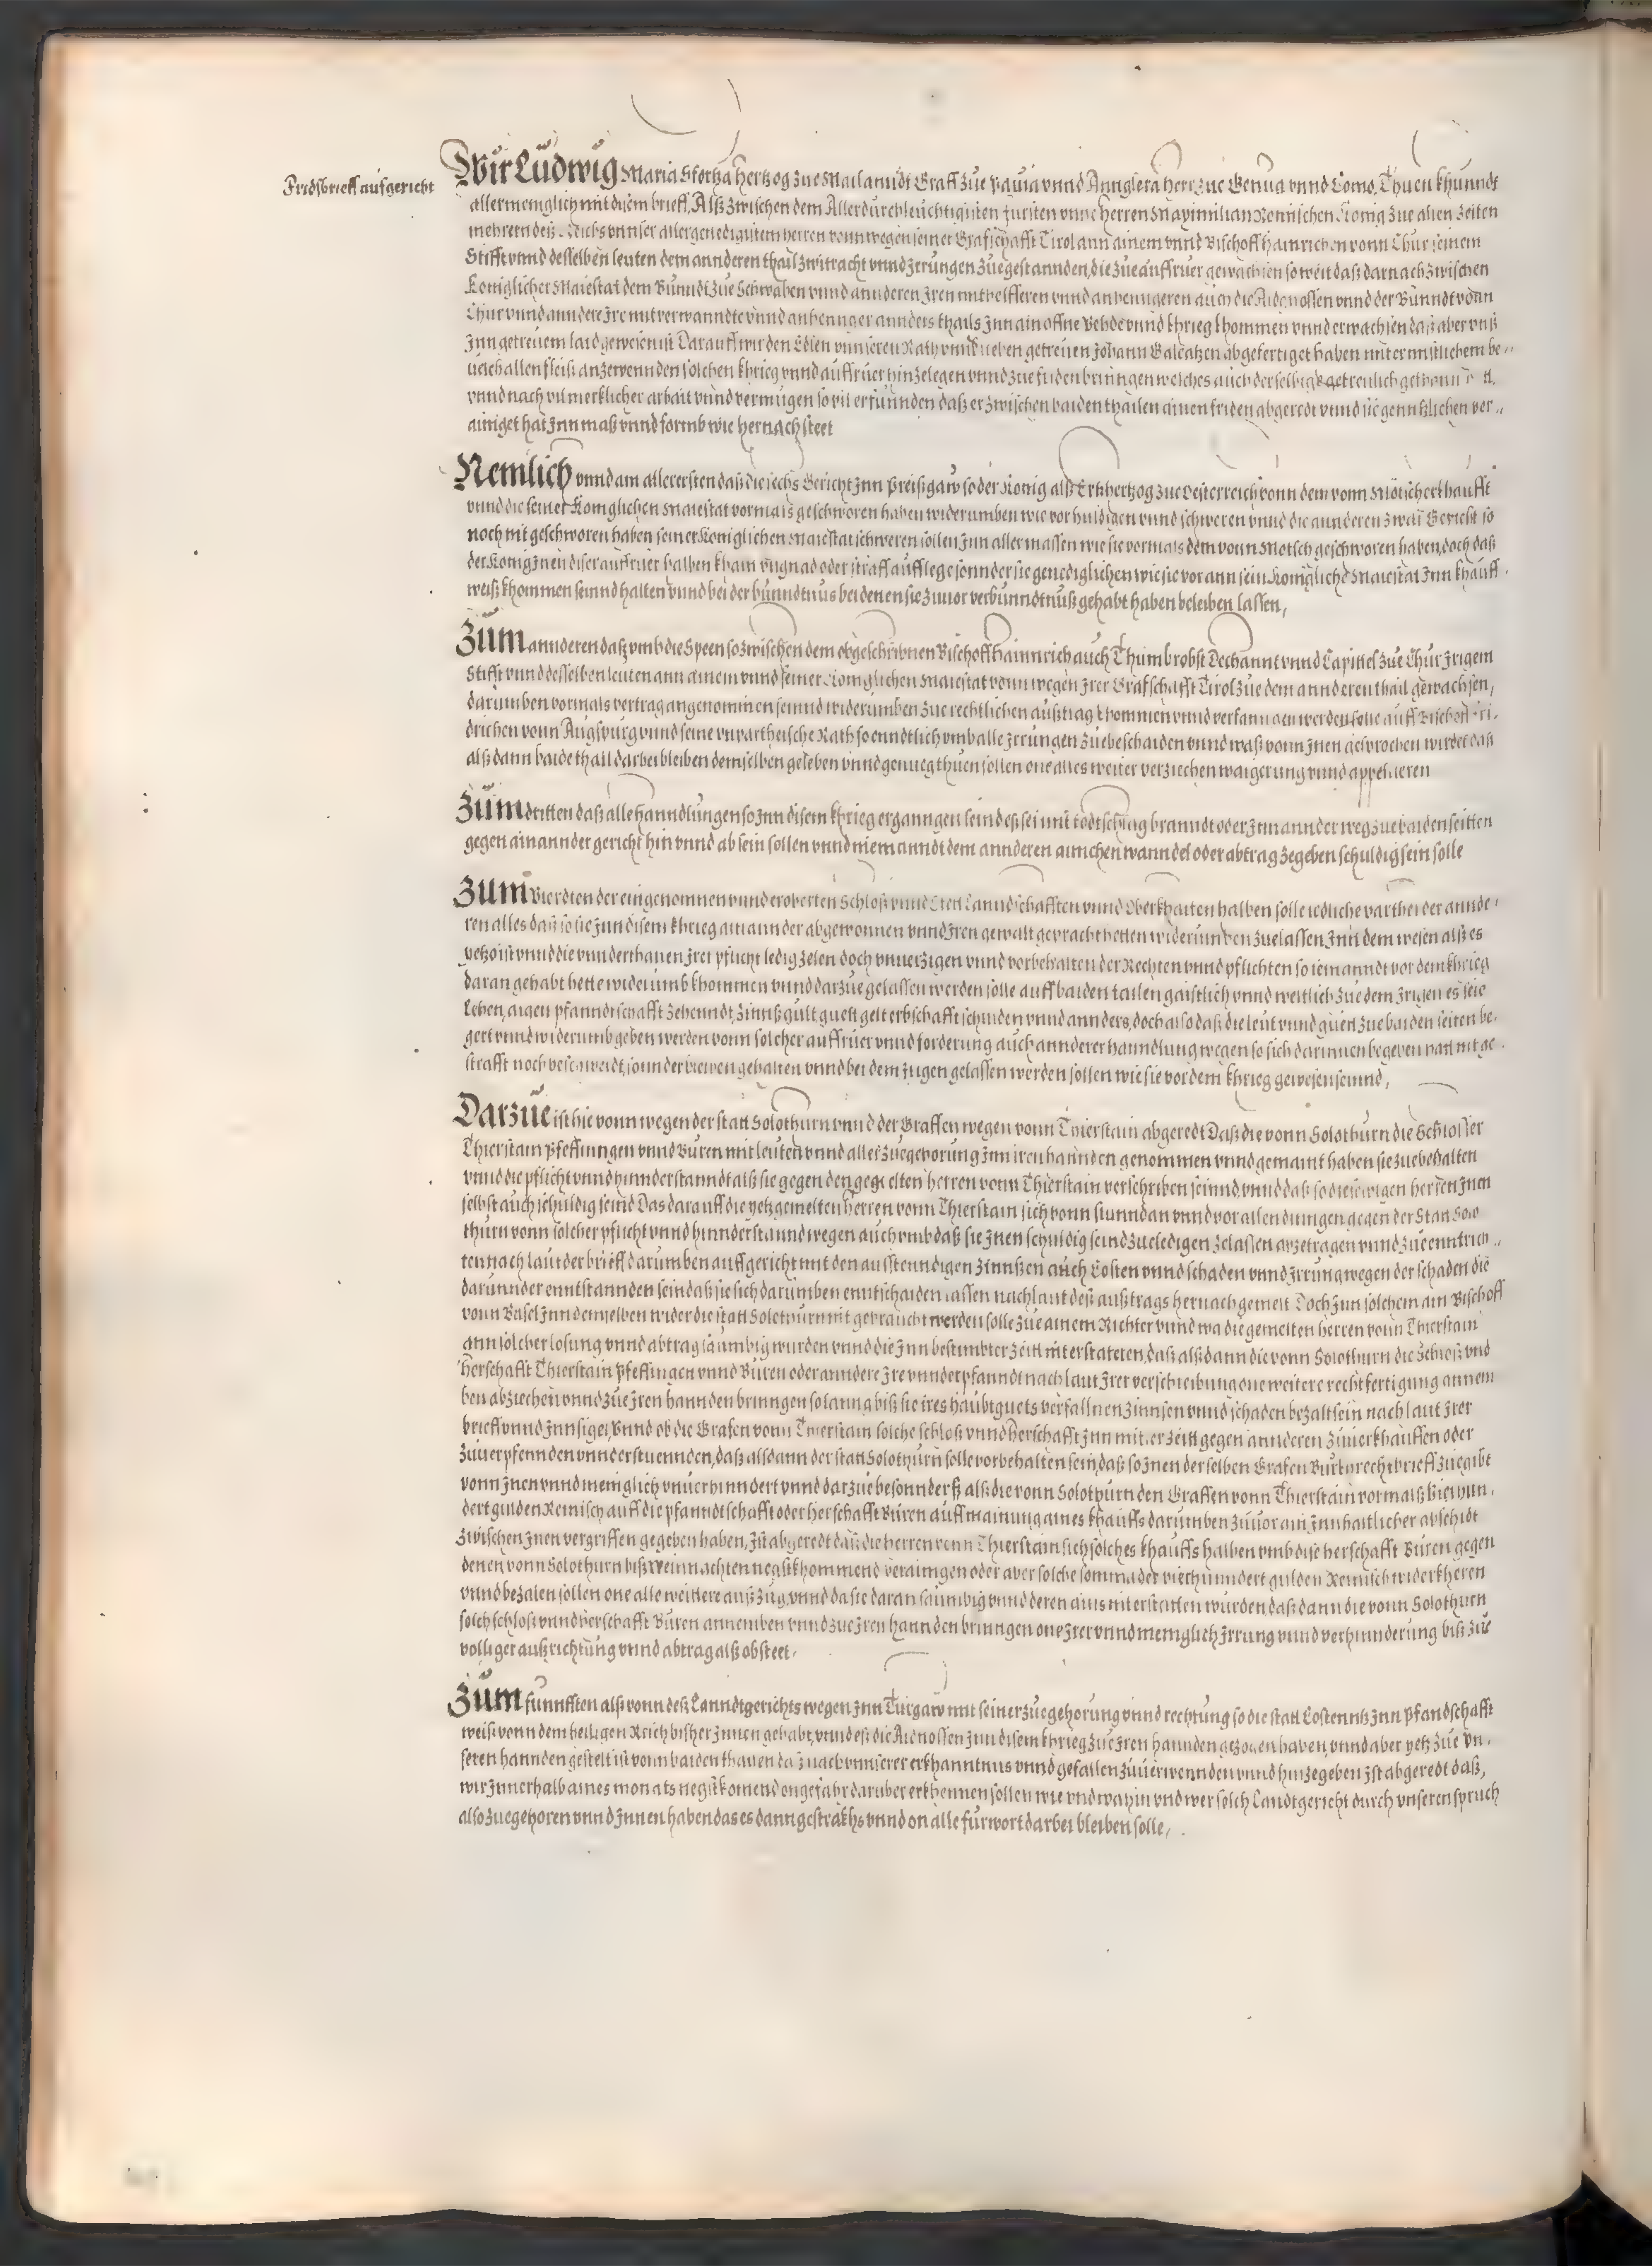 Fridsbrieff aufgericht
Wir Ludwig Maria Sfortza Hertzog zue Mailanndt Graff zue Pauia vnnd Annglera Herr zue Genua vnnd Como, Thuen khunndt
allermeniglich mit disem brieff, Alß zwischen dem Allerdurchleuchtigisten fursten vnnd herren Maximilian Remischen Konig zue allen Zeiten
mehrern deß Reichs vnnser allergenedigistem herren vonn wegen seiner Grafschafft Tirol ann ainem vnnd Bischoff Hainrichen vonn Chur seinem
Stifft vnnd desselben leuten dem annderen thail zwitracht vnnd Jerungen zuegestannden, die zue auffruer gewachsen so weit daß darnach zwischen
Koniglicher Maiestat dem Bunndt zue Schwaben vnnd annderen Jren mithelfferen vnnd anhenngeren auch die Aidgnossen vnnd der Bunndt vonn
Chur vnnd anndere Jre mitverwanndte vnnd anhennger annders thails Jnn ain offne Vehde vnnd khrieg khommen vnnd erwachsen daß aber vnß
Jnn getreuem laid gewesen ist Darauff wir den Edlen vnnseren Rath vnnd lieben getreuen Johann Galeatzen abgefertiget haben mit ernstlichem be-
uelch allen fleiß anzewennden solchen khrieg vnnd auffruer hinzelegen vnnd zue friden bringen welches auch derselbig getreulich gethonn
vnnd nach vil mercklicher arbait vnnd vermugen so vil erfunnden daß er zwischen baiden thailen ainen friden abgeredt vnnd sie genntzlichen ver-
ainiget hat Jnn maß vnnd form wie hernach steet
Nemlich vnnd am allerersten daß die sechs Gericht Jnn Preißgaw so der Konig alß Ertzhertzog zue Oesterreich vonn dem vonn Mötsch erkhaufft
vnnd die seiner Koniglichen Maiestat vormals geschworen haben widerumben wie vor huldigen vnnd schweren vnnd die annderen zwai Gericht so
noch nit geschworen haben seiner Koniglichen Maiestat schweren sollen Jnn aller massen wie sie vormals dem vonn Motsch geschworen haben, doch daß
der Konig Jnen diser auffruer halben khain vngnad oder straff aufflege sonnder sie genediglichen wie sie vor ann sein Konigliche Maiestat Jnn khauff
weiß khommen seinnd halten vnnd bei der bunndtnus bei denen sie zuuor verbunndtnuß gehabt haben beleiben lassen,
Zum annderen daß vmb die Speen so zwischen dem obgeschribnen Bischoff Hainnrich auch Thumbrobst Dechannt vnnd Capittel zue Chur Jrigem
Stifft vnnd desselben leuten ann ainem vnnd seiner Koniglichen Maiestat vonn wegen Jrer Grafschafft Tirol zue dem annderen thail gewachsen,
darumben vormals vertrag angenommen seinnd widerumben zue rechtlichen außtrag khommen vnnd verfanngen werden solle auff Bischoff Fri-
drichen vonn Augspurg vnnd seine vnpartheische Räth so enndtlich vmb alle Jrrungen zue bescheiden vnnd waß vonn Jnen gesprochen wirdet daß
alß dann baide thail darbei bleiben demselben geleben vnnd genueg thuen sollen one alles weiter verziechen waigerung vnnd appelieren
Zum dritten daß alle hanndlungen so Jnn disem khrieg erganngen seind es sei mit todtschlag branndt oder Jnn annder weg zue baiden seitten
gegen ainannder gericht hin vnnd ab sein sollen vnnd niemanndt dem annderen ainichen wanndel oder abtrag ze geben schuldig sein solle
Zum Vierdten der eingenomnen vnnd eroberten Schloß vnnd Stett Lanndtschafften vnnd Oberkhaiten halben solle iedliche parthei der annde-
ren alles daß so sie Jnn disem khrieg ainannder abgewonnen vnnd Jren gewalt gepracht hetten widerumben zuelassen Jnn dem wesen alß es
yetzo ist vnnd die vnnderthanen Jrer pflicht ledig zelen doch vnuerzigen vnnd vorbehalten der Rechten vnnd pflichten so iemanndt vor dem khrieg
daran gehabt hette widerumb khommen vnnd darzue gelassen werden solle auff baiden tailen gaistlich vnnd weltlich zue dem Jrigen es seie
Lehen, aigen pfanndtschafft Zehenndt, Zinnß gult guett gelt erbschafft schulden vnnd annders, doch also daß die leut vnnd guett zue baiden seiten be-
gert vnnd widerumb geben werden vonn solcher auffruer vnnd forderung auch annderer hanndlung wegen so sich darinnen begeben hat nit ge-
strafft noch beschwerdt, sonnder bleiben gehalten vnnd bei dem Jrigen gelassen werden sollen wie sie vor dem khrieg gewesen seinnd,
Darzue ist hie vonn wegen der statt Solothurn vnnd der Graffen wegen vonn Thierstain abgeredt Daß die vonn Solothurn die Schlosser
Thierstain Pfeffingen vnnd Büren mit leuten vnnd aller zuegehorung Jnn iren hannden genommen vnnd gemaint haben sie zue behalten
vnnd die pflicht vnnd hinnderstanndt alß sie gegen den gemelten herren vonn Thierstain verschriben seinnd, vnnd daß so dieselbigen herren Jnen
selbst auch schuldig seind Das darauff die yetzgemelten herren vonn Thierstain sich vonn stunndan vnnd vor allen dingen gegen der Statt Solo
thurn vonn solcher pflicht vnnd hinnderstannd wegen auch vmb daß sie Jnen schuldig seind zue ledigen zelassen abzetragen vnnd zue enntrich-
ten nach laut der brieff darumben auffgericht mit den ausstenndigen Zinnßen auch Costen vnnd schaden vnnd Jrrung wegen der schaden die
darunnder enntstannden sein daß sie sich darumben enntschaiden lassen nach laut deß außtrags hernach gemelt Doch Jnn solchem ain Bischoff
vonn Basel Jnn demselben wider die statt Solothurn nit gepraucht werden solle zue ainem Richter vnnd wa die gemelten herren vonn Thierstain
ann solcher losung vnnd abtrag saumbig wurden vnnd die Jnn bestimbter zeitt nit erstateten, daß alß dann die vonn Solothurn die Schloß vnd
Herschafft Thierstain Pfeffingen vnnd Büren oder anndere Jre vnnderpfanndt nach laut Jrer verschreibung one weitere rechtfertigung annem
ben abziechen vnnd zue Jren hannden bringen so lanng biß sie ires haubtguets verfallnen Zinnsen vnnd schaden bezalt sein nach laut Jrer
brieff vnnd Jnnsigel, Vnnd ob die Grafen vonn Thierstain solche schloß vnnd Herschafft Jnn mitler zeitt gegen annderen zuuerkhauffen oder
zuuerpfennden vnnderstuennden, daß alsdann der statt Solothurn solle vorbehalten sein, daß so Jnen derselben Grafen Burkhrecht brieff zuegibt
vonn Jnen vnnd meniglich vnuerhinndert vnnd darzue besonnderß alß die vonn Solothurn den Graffen vonn Thierstain vormalß Vierhun-
dert gulden Reinisch auff die Pfanndtschafft oder herschafft Büren auff mainung aines khauffs darumben zuuor ain Jnnhaltlicher abschidt
zwischen Jnen vergriffen gegeben haben, Jst abgeredt daß die herren vonn Thierstain sich solches khauffs halben vmb dise herschafft Büren gegen
denen vonn Solothurn biß Weinnachten negstkhommend verainigen oder aber solche somma der vierhunndert gulden Reinisch widerkheren
vnnd bezalen sollen one alle weittere außzug, vnnd da sie daran saumbig vnnd deren ains nit erstatten wurden daß dann die vonn Solothurn
solch schloß vnnd herschafft Büren annemben vnnd zue Jren hannden bringen one Jrer vnnd meniglich Jrrung vnnd verhinnderung biß zue
volliger außrichtung vnnd abtrag alß obsteet,
Zum funnfften alß vonn deß Lanndtgerichts wegen Jnn Turgaw mit seiner zuegehorung vnnd rechtung so die statt Costenntz Jnn Pfandschafft
weiß vonn dem heiligen Reich bißher Jnnen gehabt, vnnd deß die Aidnossen Jnn disem khrieg zue Jren hannden gezogen haben, vnnd aber yetz zue vn-
seren hannden gestelt ist vonn baiden thailen daß nach vnnserer erkhanntnus vnnd gefallen zuuerwennden vnnd hinzegeben Jst abgeredt daß,
wir Jnnerhalb aines monats negstkomend ongefahr daruber erkhennen sollen wie vnd wahin vnd wer solch Landtgericht durch vnseren spruch
also zuegehoren vnnd Jnnen haben das es dann gestrakhs vnnd on alle furwort darbei bleiben solle,